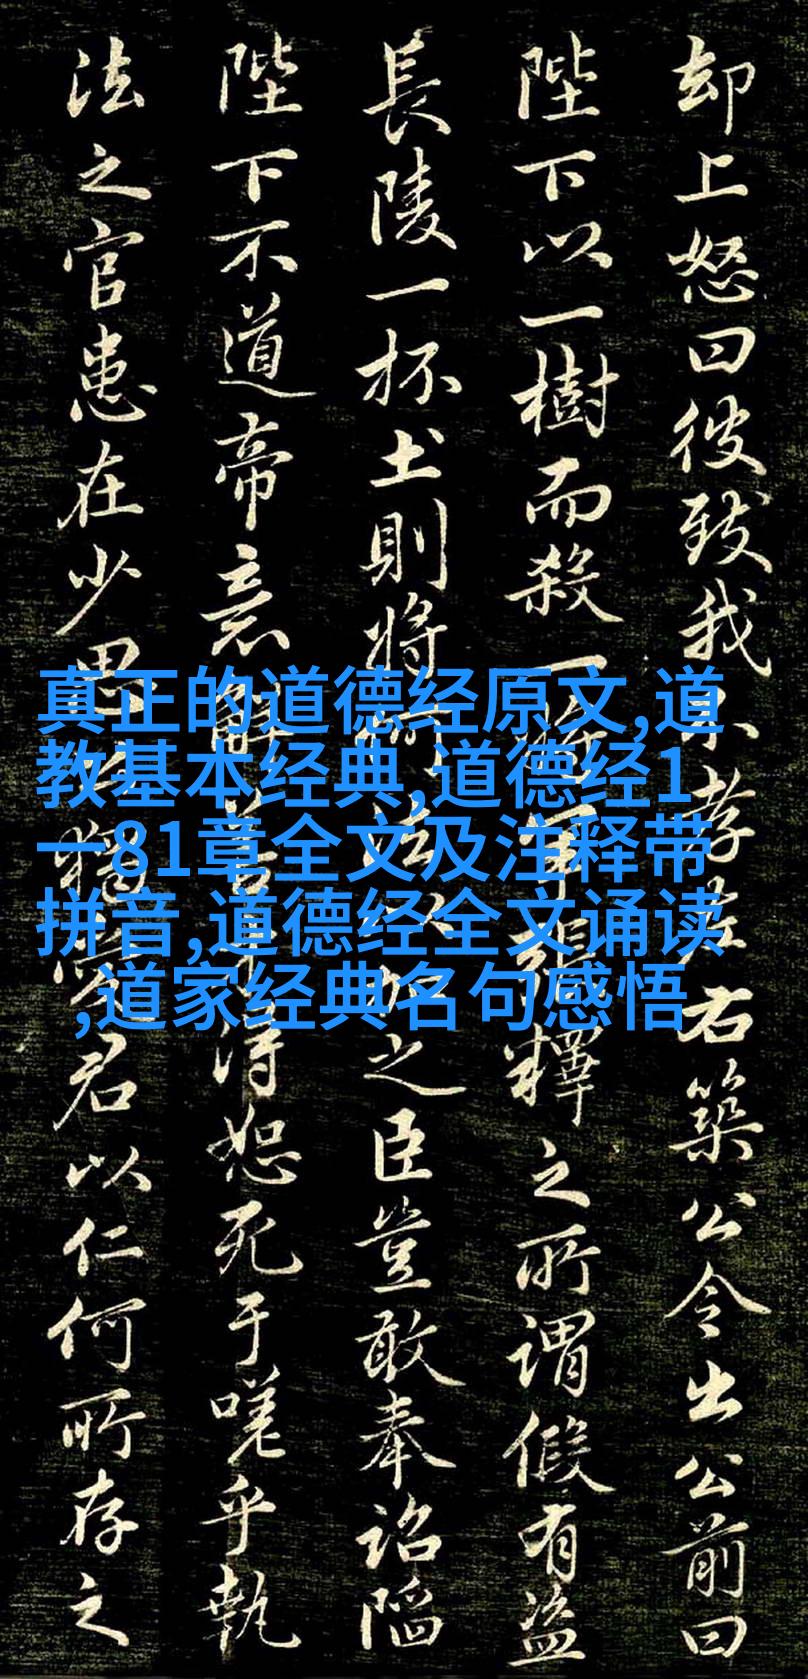 却上怒曰彼致我不孝左右築公令出公前曰
陛下以一樹而殺將軍張釋之所謂假有盜
長陵一抔土則將何法以加之臣豈敢奉詔陷
陛下不道帝意解得恕死于嗟乎執
法之官患在少恩公獨愛君以仁何所存之
真正的道德经原文,道
教基本经典,道德经1
一81章全文及注释带
拼音,道德经全文诵读
,道家经典名句感悟